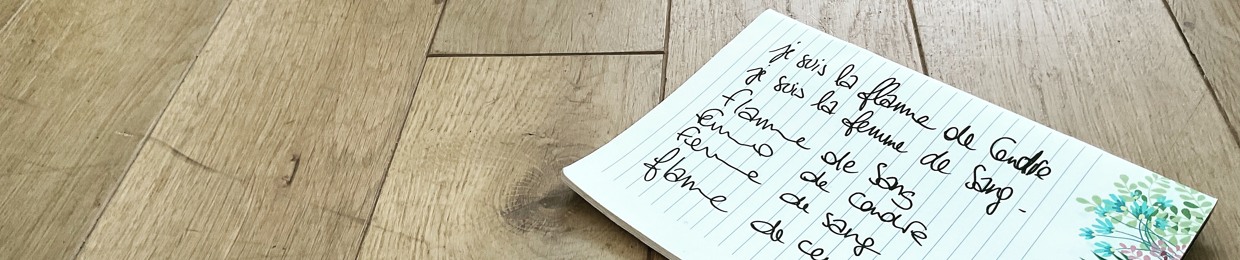 je suis la flamme de Cendre
je suis la femme de Sang.
flamme de Sang
femme de Cendre
Femme de sang
flamme de ce